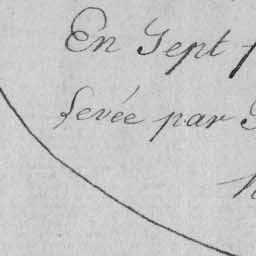 En Sept
Levée par